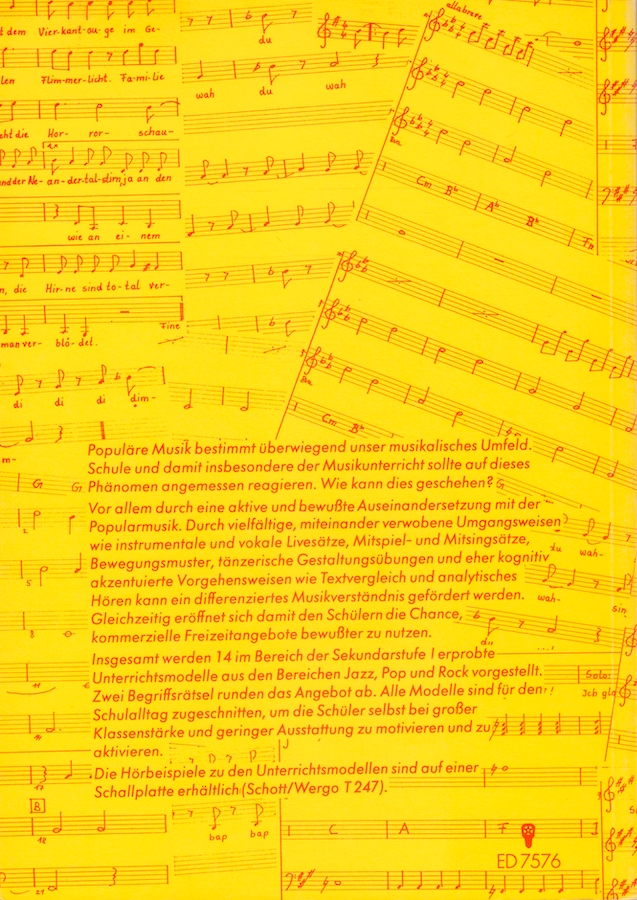 allabreve
t dem Vier-kant-au-ge im Ge-
du
len Flim-mer-licht. Fa-mi-lie
wah du wah
eht die Hor- ror- schau-
8va
und der Ne-an-der-tal-stimja an den
Cm Bb Ab Bb Fm
wie an ei- nem
n, die Hir-ne sind to-tal ver-
Fine
man ver- blö-det.
8va
di di di dim-
Cm Bb
m-
G G
Populäre Musik bestimmt überwiegend unser musikalisches Umfeld.
Schule und damit insbesondere der Musikunterricht sollte auf dieses
Phänomen angemessen reagieren. Wie kann dies geschehen?
Vor allem durch eine aktive und bewußte Auseinandersetzung mit der
Popularmusik. Durch vielfältige, miteinander verwobene Umgangsweisen
wie instrumentale und vokale Livesätze, Mitspiel- und Mitsingsätze,
Bewegungsmuster, tänzerische Gestaltungsübungen und eher kognitiv
akzentuierte Vorgehensweisen wie Textvergleich und analytisches
Hören kann ein differenziertes Musikverständnis gefördert werden.
Gleichzeitig eröffnet sich damit den Schülern die Chance,
kommerzielle Freizeitangebote bewußter zu nutzen.
du wah-
wah-
sin
du
Insgesamt werden 14 im Bereich der Sekundarstufe I erprobte
Unterrichtsmodelle aus den Bereichen Jazz, Pop und Rock vorgestellt.
Zwei Begriffsrätsel runden das Angebot ab. Alle Modelle sind für den
Schulalltag zugeschnitten, um die Schüler selbst bei großer
Klassenstärke und geringer Ausstattung zu motivieren und zu
aktivieren.
Solo:
Ich gla
Die Hörbeispiele zu den Unterrichtsmodellen sind auf einer
Schallplatte erhältlich (Schott/Wergo T 247).
B
bap bap
C A F
18
21
ED 7576